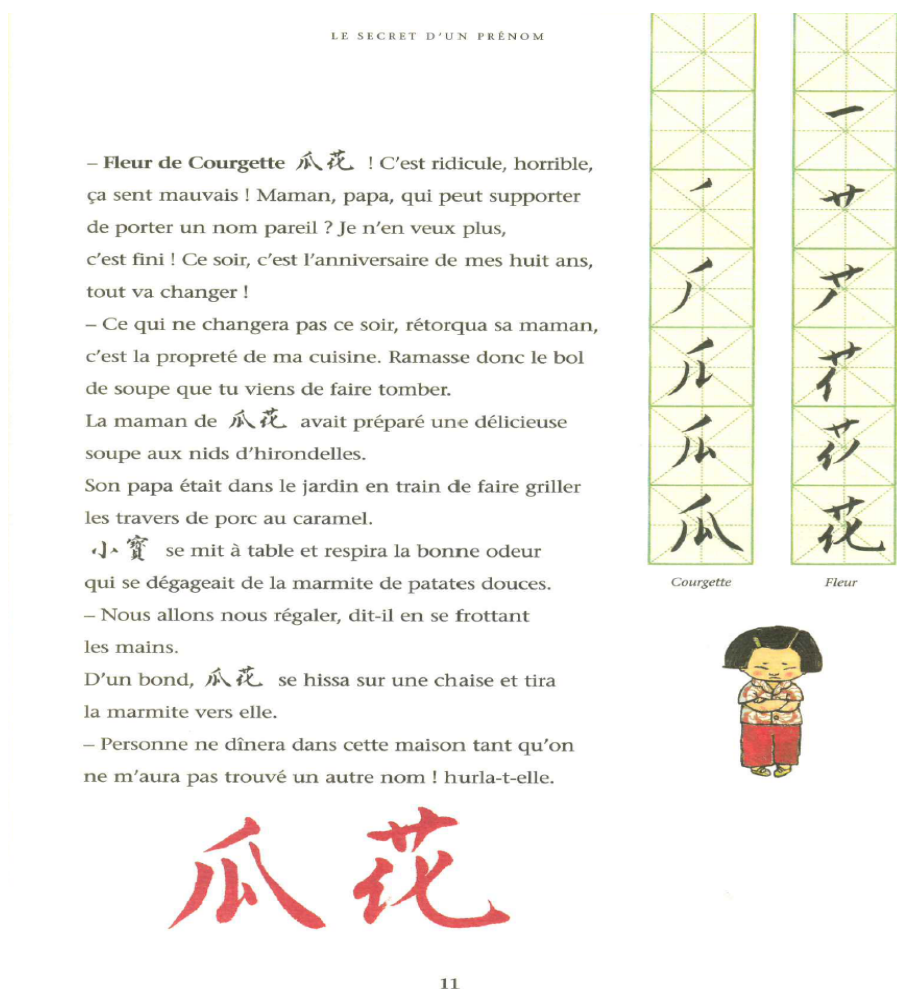 LE SECRET D'UN PRÉNOM
– Fleur de Courgette 瓜花 ! C'est ridicule, horrible,
ça sent mauvais ! Maman, papa, qui peut supporter
de porter un nom pareil ? Je n'en veux plus,
c'est fini ! Ce soir, c'est l'anniversaire de mes huit ans,
tout va changer !
– Ce qui ne changera pas ce soir, rétorqua sa maman,
c'est la propreté de ma cuisine. Ramasse donc le bol
de soupe que tu viens de faire tomber.
La maman de 瓜花 avait préparé une délicieuse
soupe aux nids d'hirondelles.
Son papa était dans le jardin en train de faire griller
les travers de porc au caramel.
小寶 se mit à table et respira la bonne odeur
qui se dégageait de la marmite de patates douces.
– Nous allons nous régaler, dit-il en se frottant
les mains.
D'un bond, 瓜花 se hissa sur une chaise et tira
la marmite vers elle.
– Personne ne dînera dans cette maison tant qu'on
ne m'aura pas trouvé un autre nom ! hurla-t-elle.
瓜花
瓜 花
Courgette Fleur
11